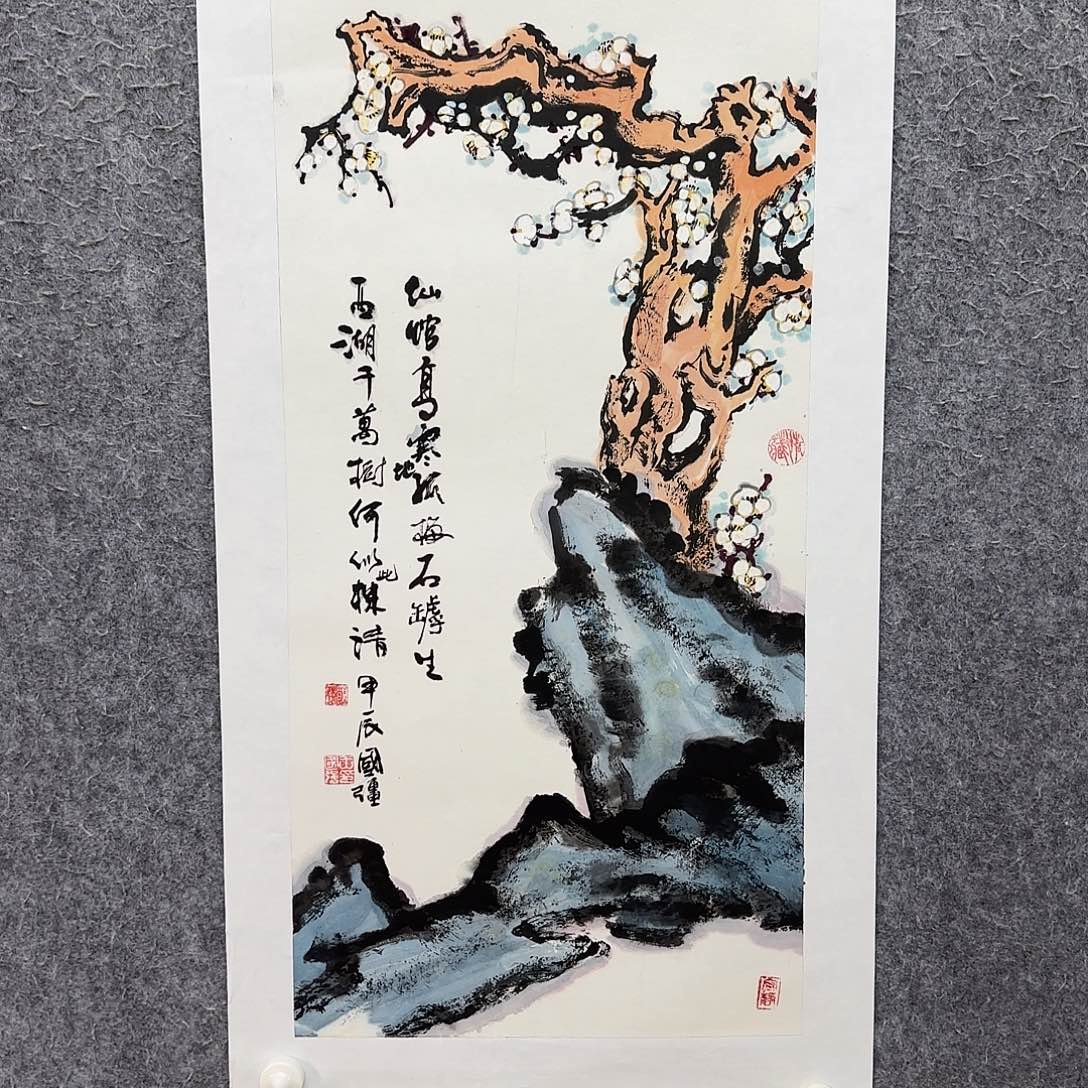 仙馆高寒地孤梅石罅生
西湖千萬樹何似此株清甲辰國疆